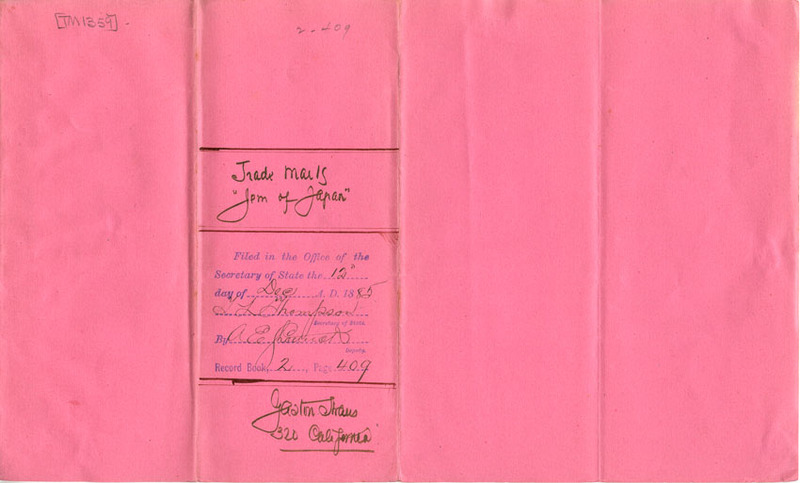 [TM1359]
2-409
Trade Mark
"Jem of Japan"
Filed in the Office of the
Secretary of State the 12"
day of Dec A. D. 1885
Thompson
Secretary of State.
By A. E.
Deputy.
Record Book, 2, Page 409
Gaston Straus
320 California